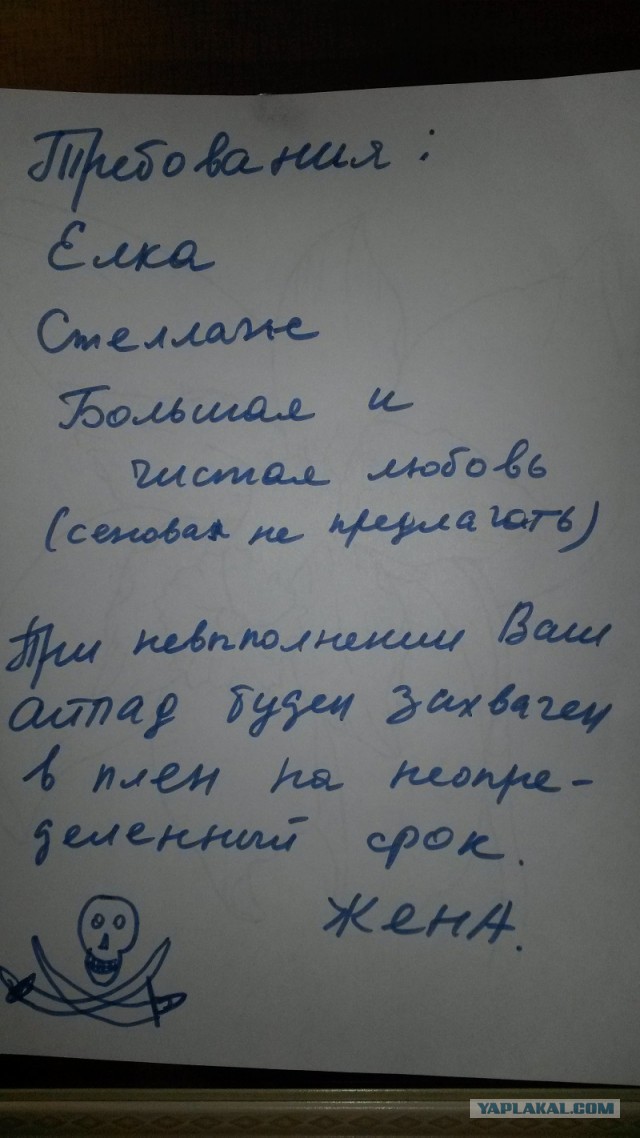 Требования:
Елка
Стеллаж
Большая и
чистая любовь
(сеновал не предлагать)
При невыполнении Ваш
айпад будет захвачен
в плен на неопре-
деленный срок.
ЖенА.
YAPLAKAL.COM